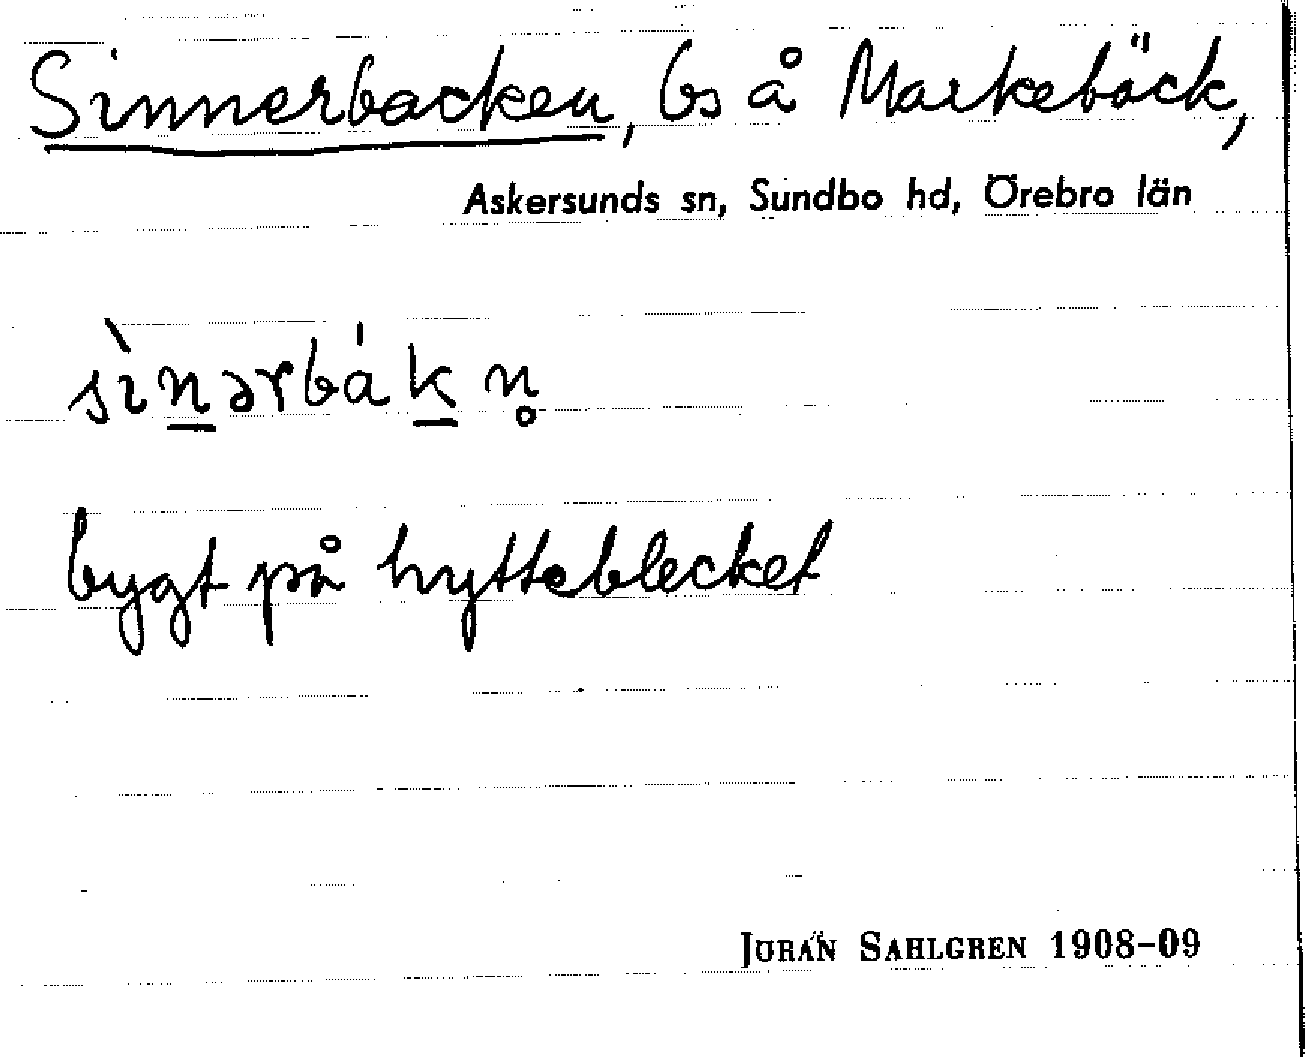 Sinnerbacken, bs å Markebäck,
Askersunds sn, Sundbo hd, Örebro län
sìn̲ərbák̲n̥
bygt på hytteblecket
JÖRAN SAHLGREN 1908–09